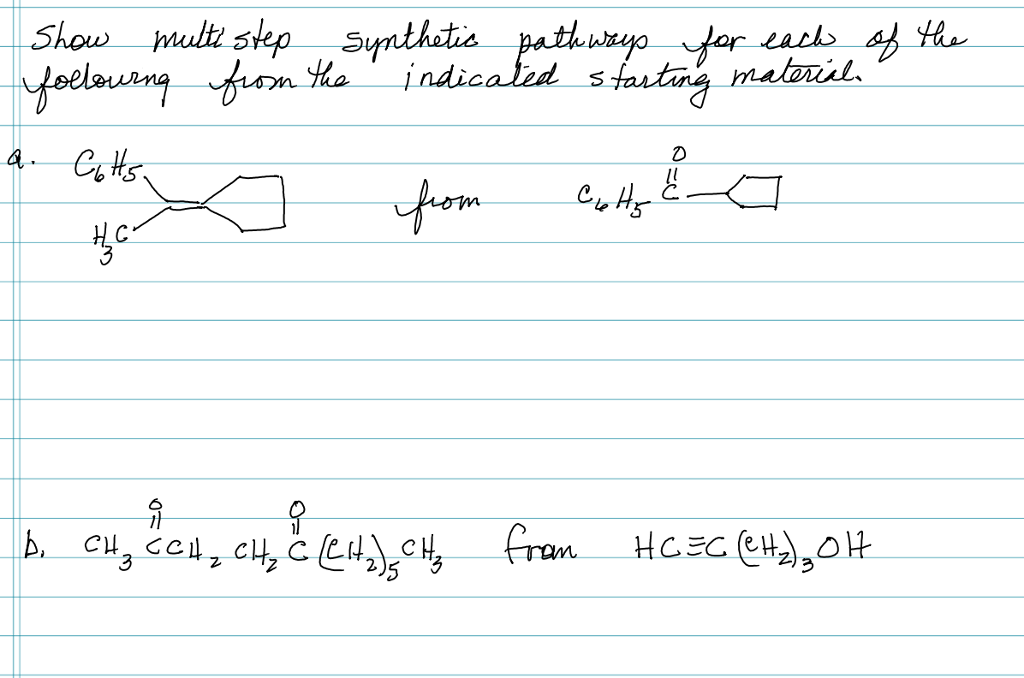 Show multi step synthetic pathways for each of the
following from the indicated starting material.
a. C6H5
H3C
from
C6H5 C
O
b. CH3CCH2CH2C(CH2)5CH3 from HC≡C(CH2)3OH
O O